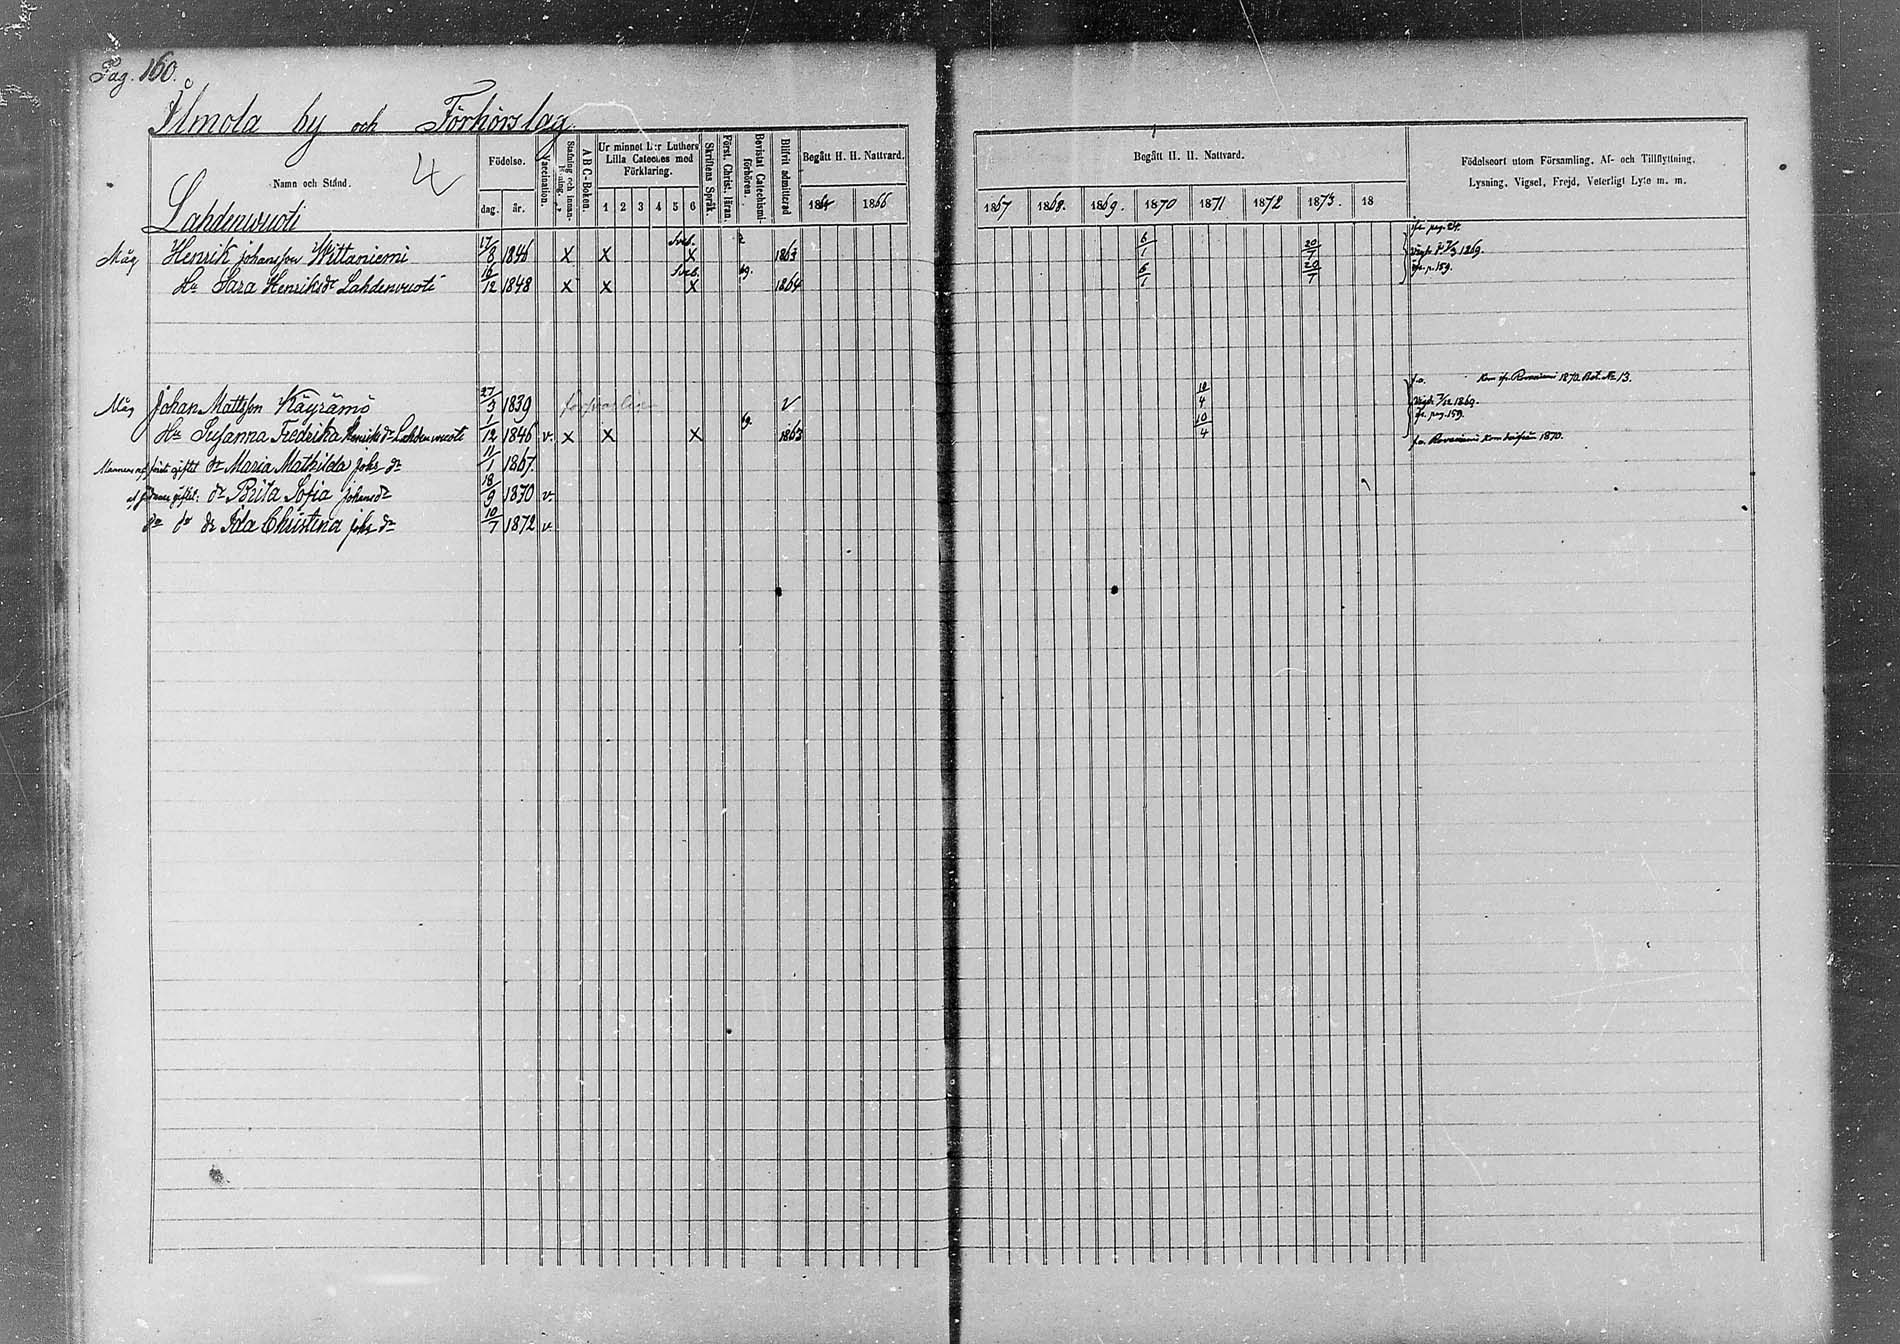 Pag. 160.
Ilmola by och Förhörslag.
Namn och Stånd.
4
Lahdenvuoti
Födelse.
dag. år.
Vaccination.
Stafning och innanläsning.
A B C-Boken.
Ur minnet D:r Luthers Lilla Cateches med Förklaring.
1 2 3 4 5 6
Skriftens Språk.
Först. Christ. läran.
Bevistat Catechismiförhören.
Blifvit admitterad
Begått H. H. Nattvard.
1866
Begått H. H. Nattvard.
1867 1868. 1869. 1870 1871 1872 1873. 18
Födelseort utom Församling, Af- och Tillflyttning,
Lysning, Vigsel, Frejd, Veterligt Lyte m. m.
Måg Henrik Johansson Wittaniemi 17/8 1846 x x Sveb. x 1863 6/1 20/7 fr. pag. 24. 1869.
Hu Sara Henriksdr Lahdenvuoti 16/12 1848 x x Sveb. x 1864 6/1 20/7 fr. p. 159.
Måg Johan Mattsson Käyrämö 27/3 1839 v 10/4 f. o. Kom fr. Rovaniemi 1870. Bet. No 13. 1869.
Hu Susanna Fredrika Henriksdr Lahdenvuoti 1/12 1846 v. x x x 1863 10/4 fr. pag. 159.
Mannens af förist giftet dr Maria Mathilda Johs dr 11/1 1867. f. o. Rovaniemi kom därifrån 1870.
af sednare giftet: dr Brita Sofia Johansdr 18/9 1870 v.
do do dr Ida Christina Johs dr 10/7 1872 v.